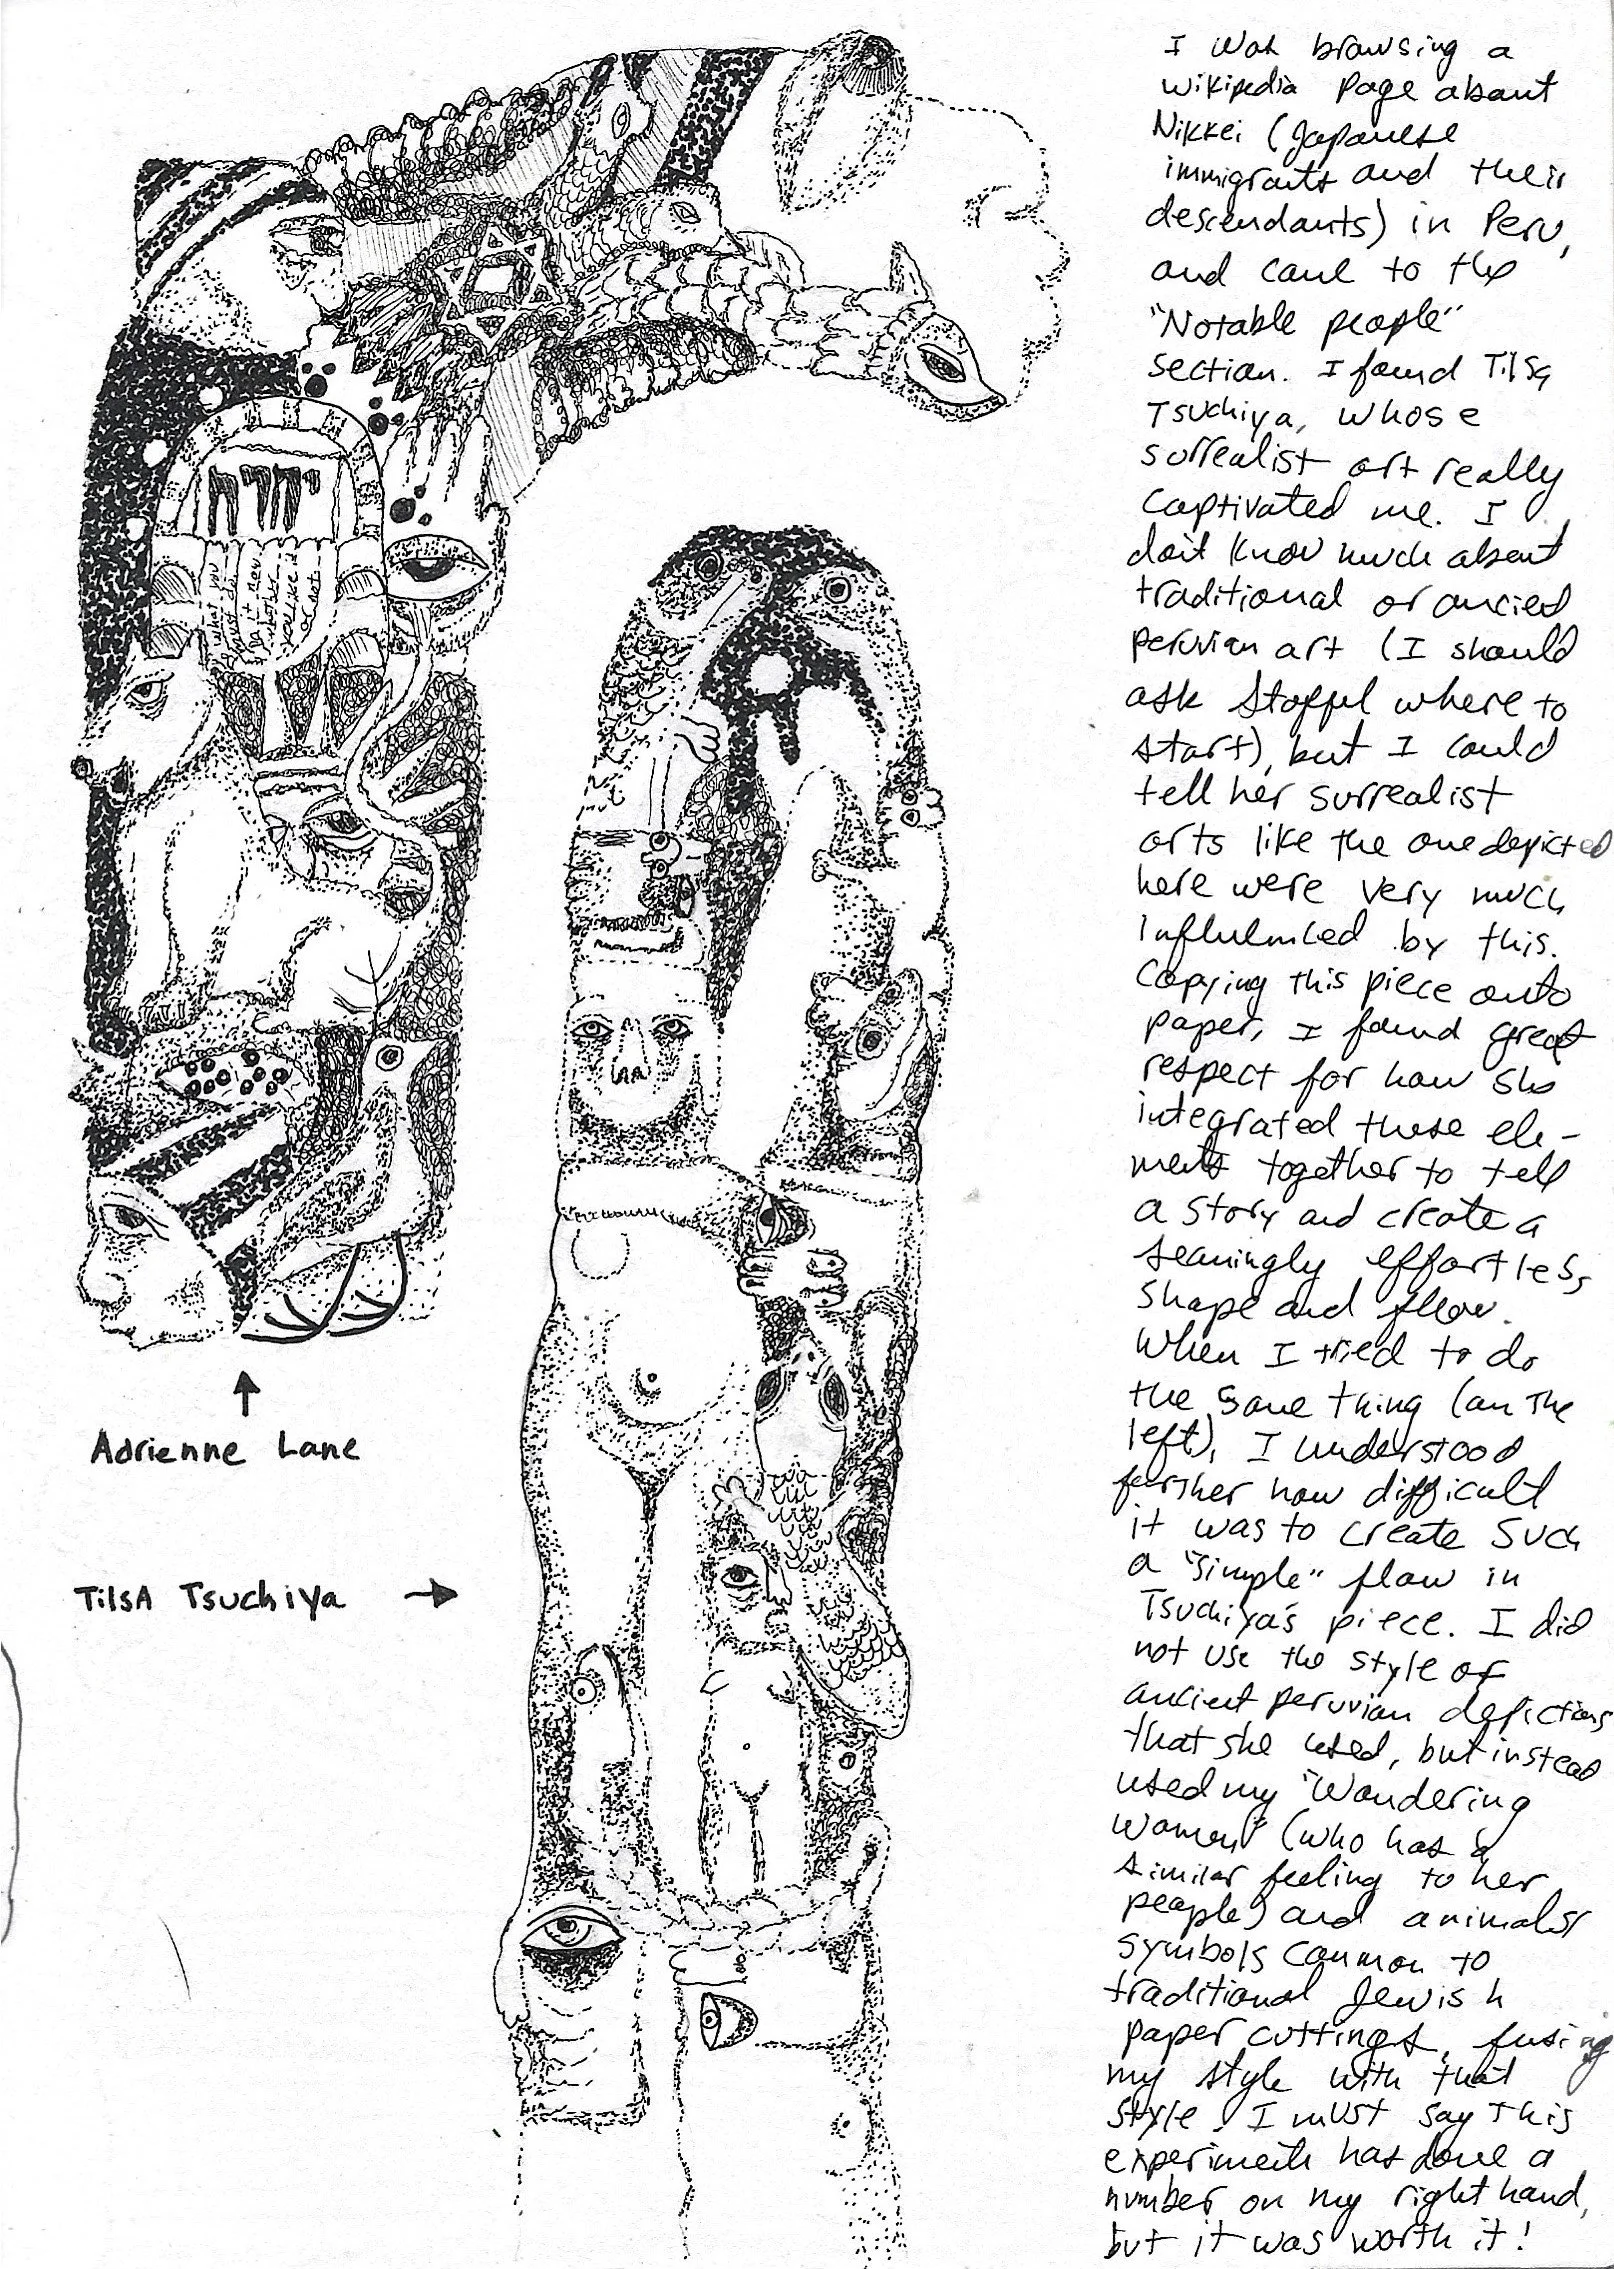 I was browsing a
wikipedia page about
Nikkei (Japanese
immigrants and their
descendants) in Peru,
and came to the
"Notable people"
section. I found Tilsa
Tsuchiya, whose
surrealist art really
captivated me. I
don't know much about
traditional or ancient
peruvian art (I should
ask where to
start), but I could
tell her surrealist
arts like the one depicted
here were very much
influenced by this.
Copying this piece onto
paper, I found great
respect for how she
integrated these ele-
ments together to tell
a story and create a
seamingly effortless
shape and flow.
When I tried to do
the same thing (on the
left), I understood
further how difficult
it was to create such
a "simple" flow in
Tsuchiya's piece. I did
not use the style of
ancient peruvian depictions
that she used, but instead
used my "Wandering
Women" (who has a
similar feeling to her
people) and animals/
symbols common to
traditional Jewish
paper cuttings, fusing
my style with that
style. I must say this
experiment has done a
number on my right hand,
but it was worth it!
יהוה
what you
must do.
Do it now
whether
you like it
or not.
Adrienne Lane
Tilsa Tsuchiya